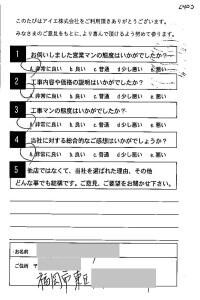 このたびはアイエ株式会社をご利用頂きありがとうございます。
みなさまのご意見をもとに、より喜んで頂けるよう努めて参ります。
1 お伺いしました営業マンの態度はいかがでしたか?
a 非常に良い b 良い c 普通 d 少し悪い e 悪い
2 工事内容や価格の説明はいかがでしたか?
a 非常に良い b 良い c 普通 d 少し悪い e 悪い
3 工事マンの態度はいかがでしたか?
a 非常に良い b 良い c 普通 d 少し悪い e 悪い
4 当社に対する総合的なご感想はいかがでしょうか?
a 非常に良い b 良い c 普通 d 少し悪い e 悪い
5 他店ではなくて、当社を選ばれた理由、その他
どんな事でも結構です。ご意見、ご要望をお聞かせ下さい。
お名前
ご住所
福岡市東区